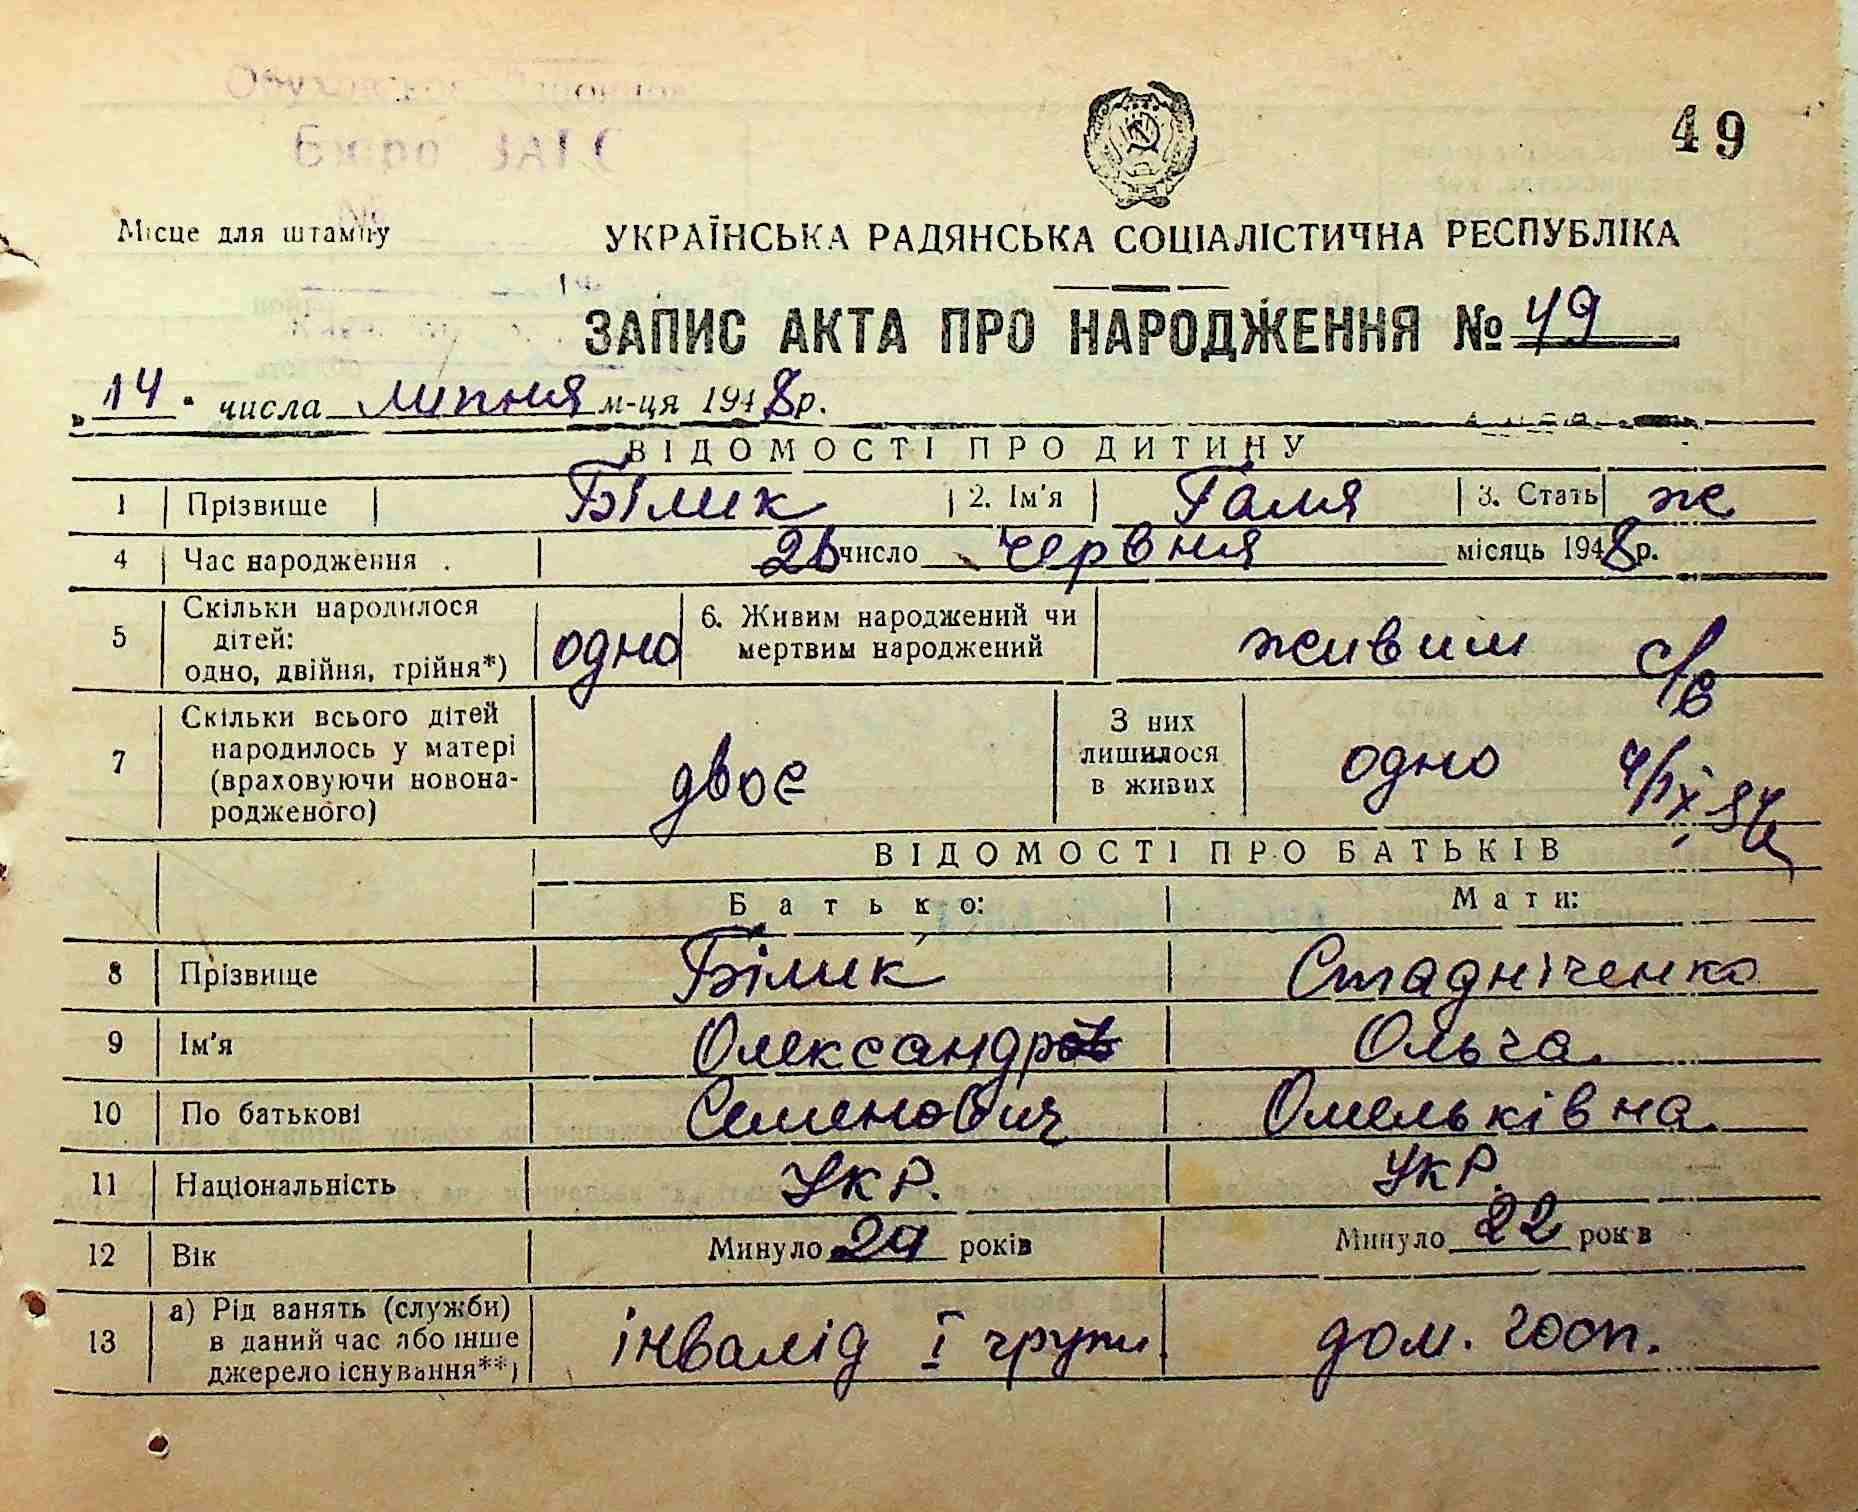 Бюро ЗАГС
49
Місце для штампу
УКРАЇНСЬКА РАДЯНСЬКА СОЦІАЛІСТИЧНА РЕСПУБЛІКА
ЗАПИС АКТА ПРО НАРОДЖЕННЯ № 49
„14" числа липня м-ця 1948 р.
ВІДОМОСТІ ПРО ДИТИНУ
1 Прізвище Білик 2. Ім'я Галя 3. Стать ж
4 Час народження . число червня місяць 1948 р.
5 Скільки народилося дітей: одно, двійня, трійня*) одно 6. Живим народжений чи мертвим народжений живим с/в
7 Скільки всього дітей народилось у матері (враховуючи новонародженого) двоє З них лишилося в живих одно
ВІДОМОСТІ ПРО БАТЬКІВ
Батько: Мати:
8 Прізвище Білик Стадніченко
9 Ім'я Олександр Ольга
10 По батькові Семенович Омельківна
11 Національність Укр. Укр.
12 Вік Минуло 29 років Минуло 22 рок в
13 а) Рід занять (служби) в даний час або інше джерело існування**) інвалід І групи дом. госп.